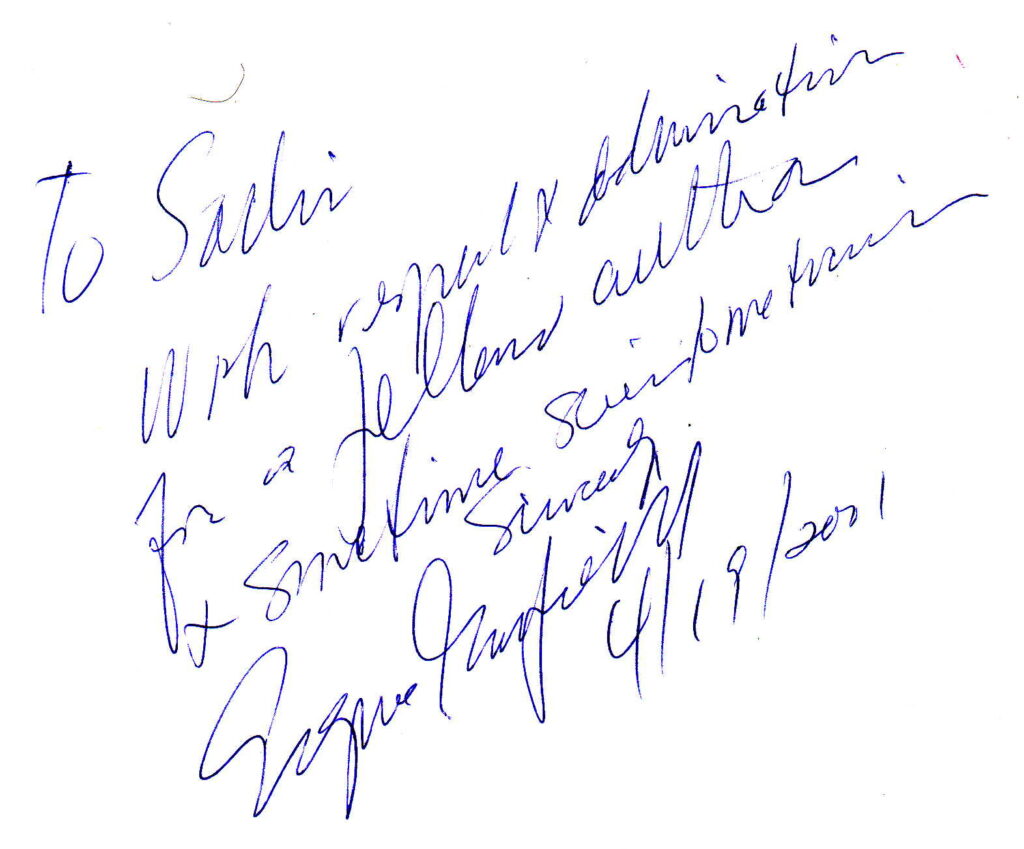 To Sadri
With respect & admiration
for a fellow author
+ sometime scientometrician
Sincerely
Eugene Garfield
4/19/2001